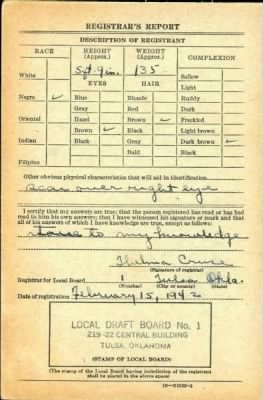 REGISTRAR'S REPORT
DESCRIPTION OF REGISTRANT
RACE HEIGHT (Approx.) WEIGHT (Approx.) COMPLEXION
5 ft. 9 in. 135
White Sallow
EYES HAIR Light
Negro ✓ Blue Blonde Ruddy
Gray Red Dark
Oriental Hazel Brown ✓ Freckled
Brown ✓ Black Light brown
Indian Black Gray Dark brown ✓
Bald Black
Filipino
Other obvious physical characteristics that will aid in identification
scar over right eye
I certify that my answers are true; that the person registered has read or has had
read to him his own answers; that I have witnessed his signature or mark and that
all of his answers of which I have knowledge are true, except as follows:
to my knowledge
Thelma Cruse
(Signature of registrar)
Registrar for Local Board 1 Tulsa Okla.
(Number) (City or county) (State)
Date of registration February 15, 1942
LOCAL DRAFT BOARD No. 1
219-22 CENTRAL BUILDING
TULSA, OKLAHOMA
(STAMP OF LOCAL BOARD)
(The stamp of the Local Board having jurisdiction of the registrant
shall be placed in the above space)